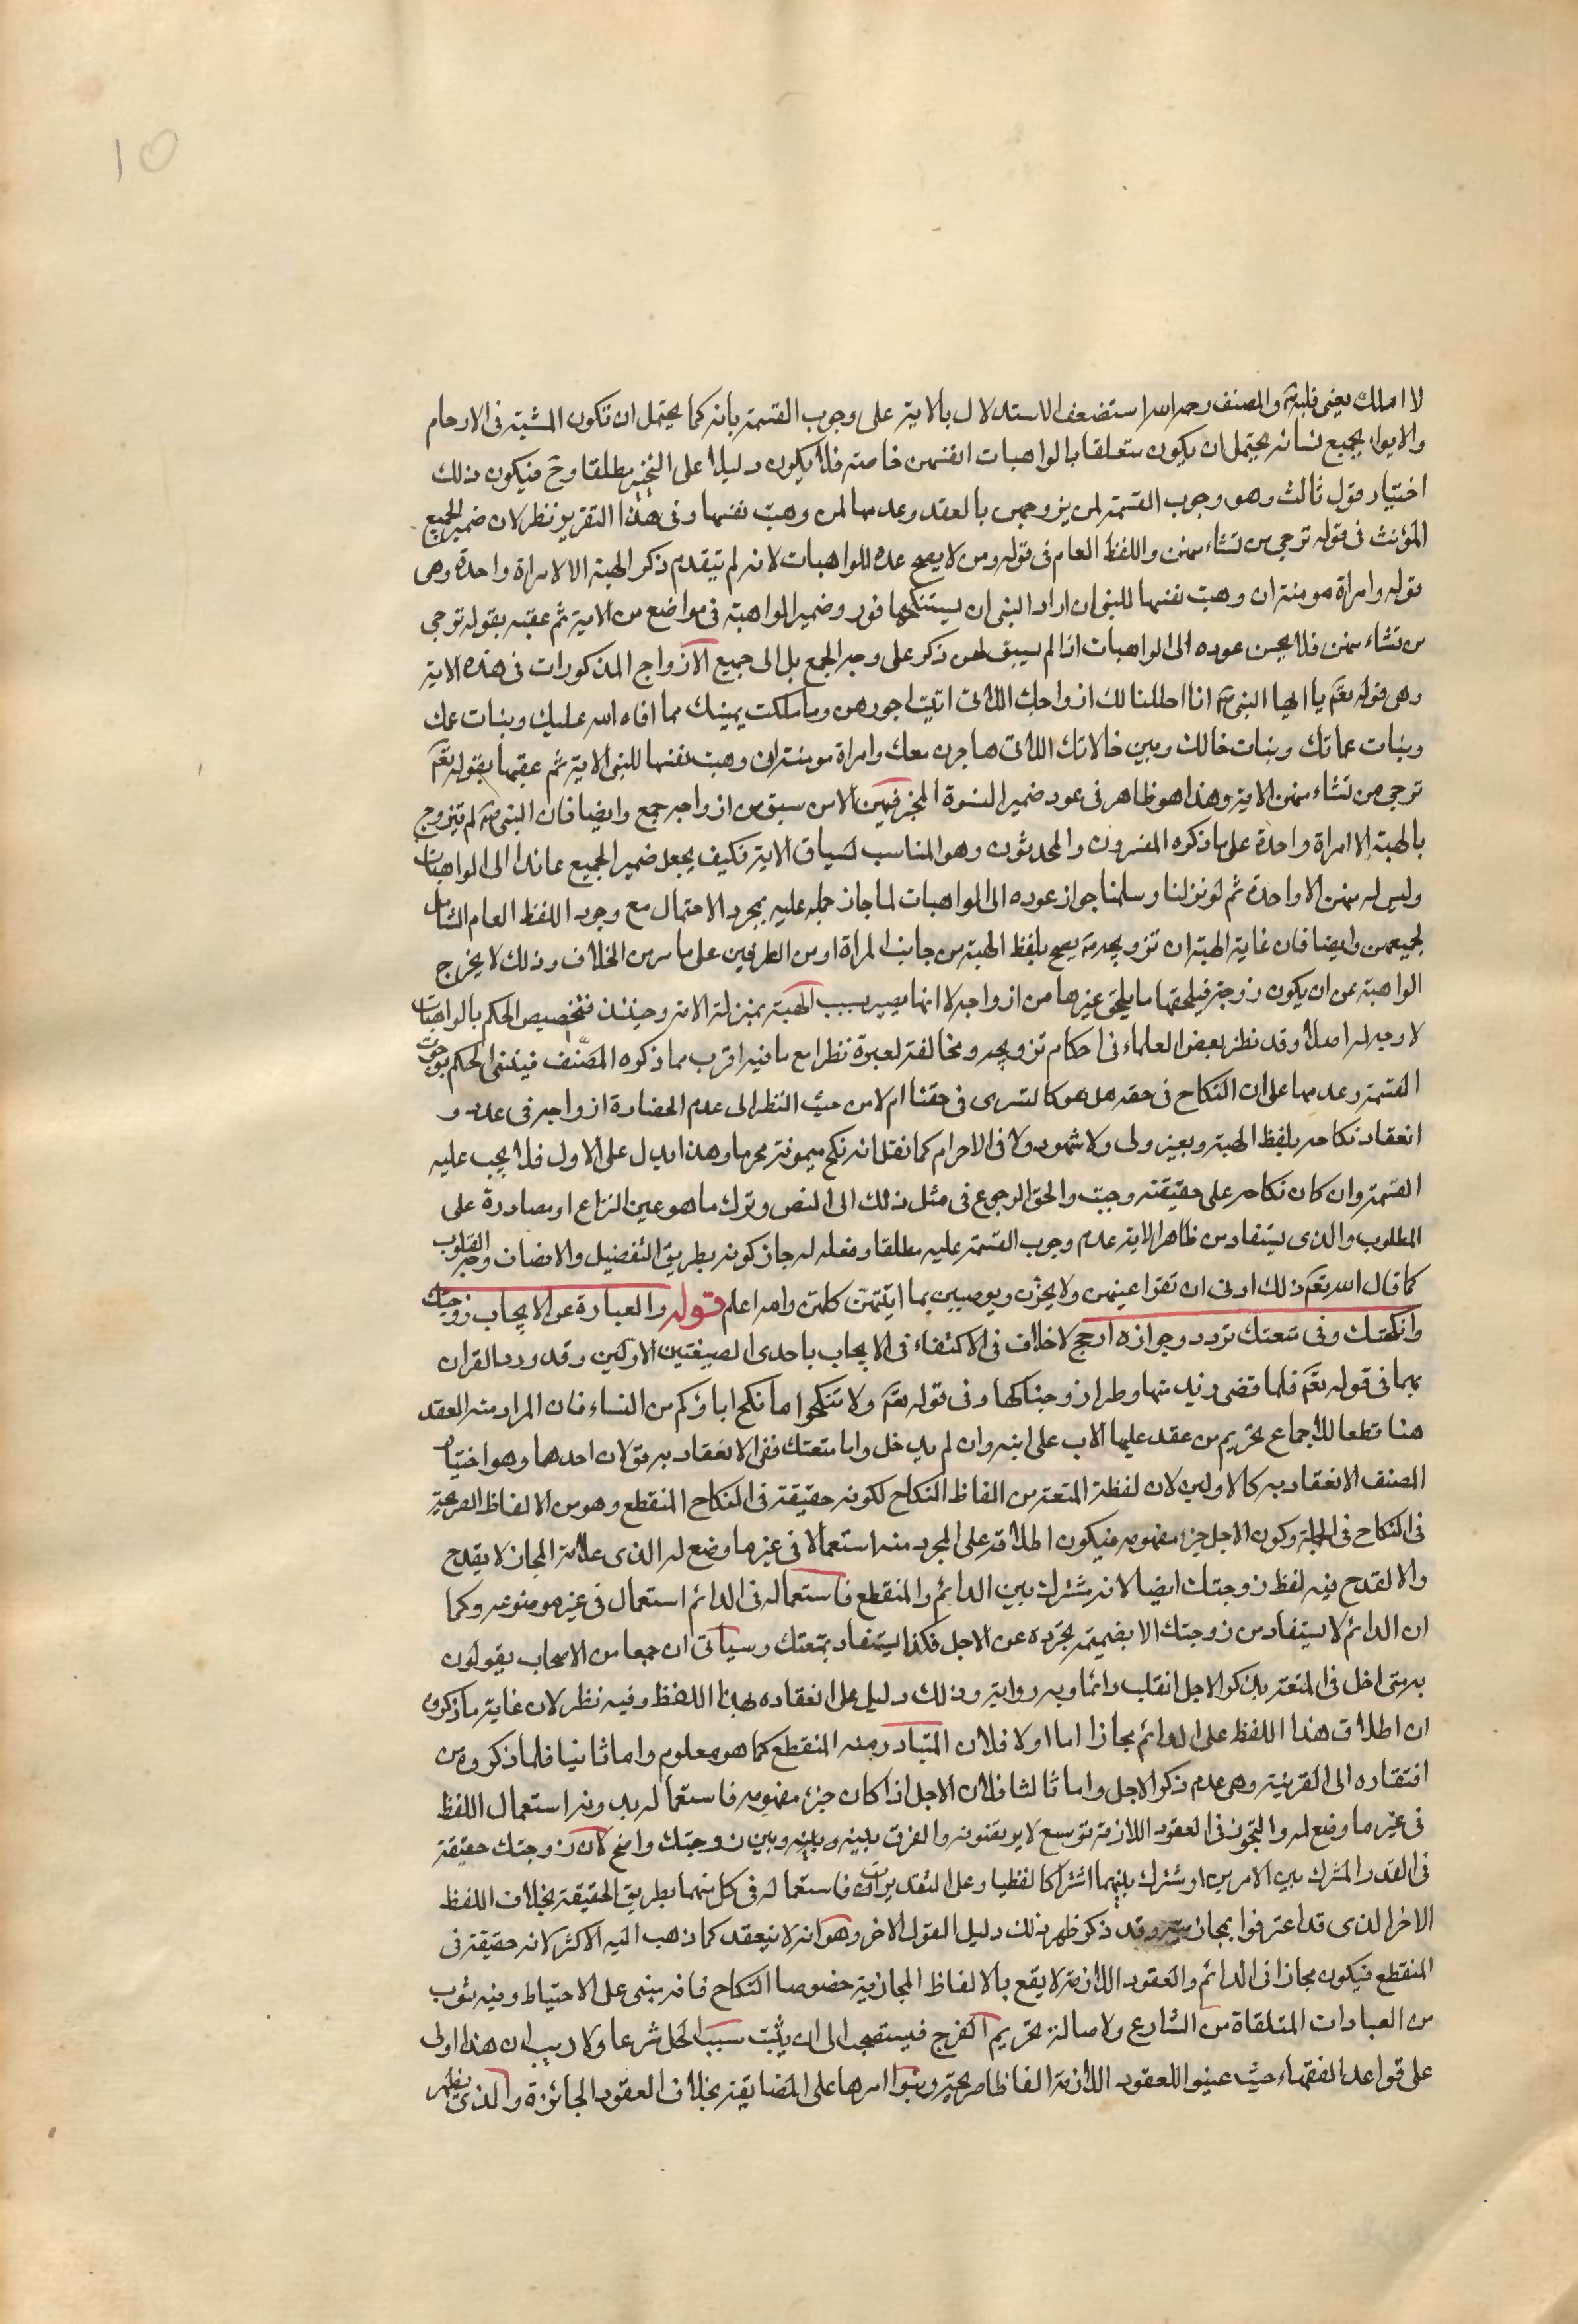 10
لا املك يعنى قلبه ص والمصنف رحمه الله استضعف الاستدلال بالاية على وجوب القسمة بانه كما يحتمل ان تكون المشية فى الارحام
والايواء بجميع نسائه يحتمل ان يكون متعلقا بالواهبات انفسهن خاصة فلا يكون دليلا على التخيير مطلقا وح فيكون ذلك
اختيار قول ثالث وهو وجوب القسمة لمن يزوجهن بالعقد وعدمها لمن وهبت نفسها وفى هذا التقرير نظر لان ضمير الجمع
المؤنث فى قوله ترجى من تشاء منهن واللفظ العام فى قوله ومن لا يصح عده للواهبات لانه لم يتقدم ذكر الهبة الا لامراة واحدة وهى
قوله وامراة مومنة ان وهبت نفسها للنبى ان اراد النبى ان يستنكحها فورد ضمير الواهبة فى مواضع من الاية ثم عقبه بقوله ترجى
من تشاء منهن فلا يحسن عوده الى الواهبات اذا لم يسبق لهن ذكر على وجه الجمع بل الى جميع الازواج المذكورات فى هذه الاية
وهى قوله تع يا ايها النبى ص انا احللنا لك ازواجك اللاتى اتيت اجورهن وما ملكت يمينك مما افاء الله عليك وبنات عمك
وبنات عماتك وبنات خالك وبين خالاتك اللاتى هاجرن معك وامراة مومنة ان وهبت نفسها للنبى الاية ثم عقبها بقوله تع
ترجى من تشاء منهن الاية وهذا هو ظاهر فى عود ضمير النسوة المخير فيهن الا من سبق من ازواجه جمع وايضا فان النبى ص لم يتزوج
بالهبة الا امراة واحدة على ما ذكره المفسرون والمحدثون وهو المناسب لسياق الاية فكيف يجعل ضمير الجميع عائدا الى الواهبات
وليس له منهن الا واحدة ثم لو نزلنا وسلمنا جواز عوده الى الواهبات لما جاز حمله عليه بمجرد الاحتمال مع وجود اللفظ العام الشامل
لجميعهن وايضا فان غاية الهبة ان تزويجه ص يصح بلفظ الهبة من جانب المراة او من الطرفين على ما مر من الخلاف وذلك لا يخرج
الواهبة عن ان يكون زوجة فيلحقها ما يلحق غيرها من ازواجه لا انها يصير بسبب الهبة بمنزلة الامة وحينئذ فتخصيص الحكم بالواهبات
لا وجه له اصلا وقد نظر بعض العلماء فى احكام تزويجه ومخالفته لعيره نظرا مع ما فيه اقرب مما ذكره المصنف فيبنى الحكم بوجوب
القسمة وعدمها على ان النكاح فى حقه هل هو كالتسرى فى حقنا ام لا من حيث النظر الى عدم انحصار ازواجه فى عدد و
انعقاد نكاحه بلفظ الهبة وبغير ولى ولا شهود ولا فى الاحرام كما نقل انه نكح ميمونة محرما وهذا يدل على الاول فلا يجب عليه
القسمة وان كان نكاحه على حقيقته وجبت والحق الرجوع فى مثل ذلك الى النص وترك ما هو عين النزاع او مصادرة على
المطلوب والذى يستفاد من ظاهر الاية عدم وجوب القسمة عليه مطلقا وفعله له جاز كونه بطريق التفضيل والانصاف وجبر القلوب
كما قال الله تع ذلك ادنى ان تقر اعينهن ولا يحزن ويرضين بما اتيتهن كلهن والله اعلم قوله والعبارة عن الايجاب زوجتك
وانكحتك وفى متعتك تردد وجوازه ارجح لا خلاف فى الاكتفاء فى الايجاب باحدى الصيغتين الاوليين وقد ورد القران
بهما فى قوله تع فلما قضى زيد منها وطرا زوجناكها وفى قوله تع ولا تنكحوا ما نكح اباؤكم من النساء فان المراد منه العقد
هنا قطعا للاجماع بتحريم من عقد عليها الاب على ابنه وان لم يدخل واما متعتك ففى الانعقاد به قولان احدهما وهو اختيار
المصنف الانعقاد به كالاولين لان لفظة المتعة من الفاظ النكاح لكونه حقيقة فى النكاح المنقطع وهو من الالفاظ الصريحة
فى النكاح فى الجملة وكون الاجل جزء مفهومه فيكون اطلاقه على المجرد منه استعمالا فى غير ما وضع له الذى علامة المجاز لا يقدح
والا لقدح فيه لفظ زوجتك ايضا لانه مشترك بين الدائم والمنقطع فاستعماله فى الدائم استعمال فى غير موضوعه وكما
ان الدائم لا يستفاد من زوجتك الا بضميمة تجرده عن الاجل فكذا يستفاد بمتعتك وسياتى ان جمعا من الاصحاب يقولون
به متى اخل فى المتعة بذكر الاجل انقلب دائما وبه رواية وذلك دليل على انعقاده بهذا اللفظ وفيه نظر لان غاية ما ذكروه
ان اطلاق هذا اللفظ على الدائم مجازا اما اولا فلان المتبادر منه المنقطع كما هو معلوم واما ثانيا فلما ذكروه من
افتقاره الى القرينة وهى عدم ذكر الاجل واما ثالثا فلان الاجل اذا كان جزء مفهومه فاستعماله بدونه استعمال اللفظ
فى غير ما وضع له والتجوز فى العقود اللازمة توسع لا يرتضونه والفرق بينه وبينه وبين زوجتك واضح لان زوجتك حقيقة
فى القدر المشترك بين الامرين او مشترك بينهما اشتراكا لفظيا وعلى التقديرات فاستعماله فى كل منهما بطريق الحقيقة بخلاف اللفظ
الاخر الذى قد اعترفوا بمجازيته وقد ذكر ظهر بذلك دليل القول الاخر وهو انه لا ينعقد كما ذهب اليه الاكثر لانه حقيقة فى
المنقطع فيكون مجازا فى الدائم والعقود اللازمة لا يقع بالالفاظ المجازية خصوصا النكاح فانه مبنى على الاحتياط وفيه شوب
من العبادات المتلقاة من الشارع ولاصالة تحريم الفرج فيستصحب الى ان يثبت سبب الحل شرعا ولا ريب ان هذا اولى
على قواعد الفقهاء حيث عينوا للعقود اللازمة الفاظا صريحة وبنوا امرها على المضايقة بخلاف العقود الجائزة والذى يظهر